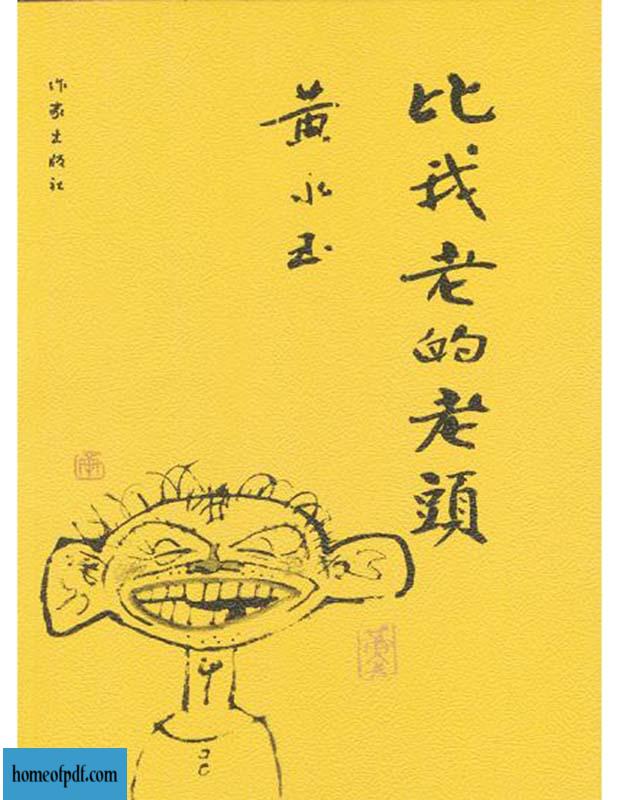 比我老的老頭
黄永玉
作家出版社
homeofpdf.com